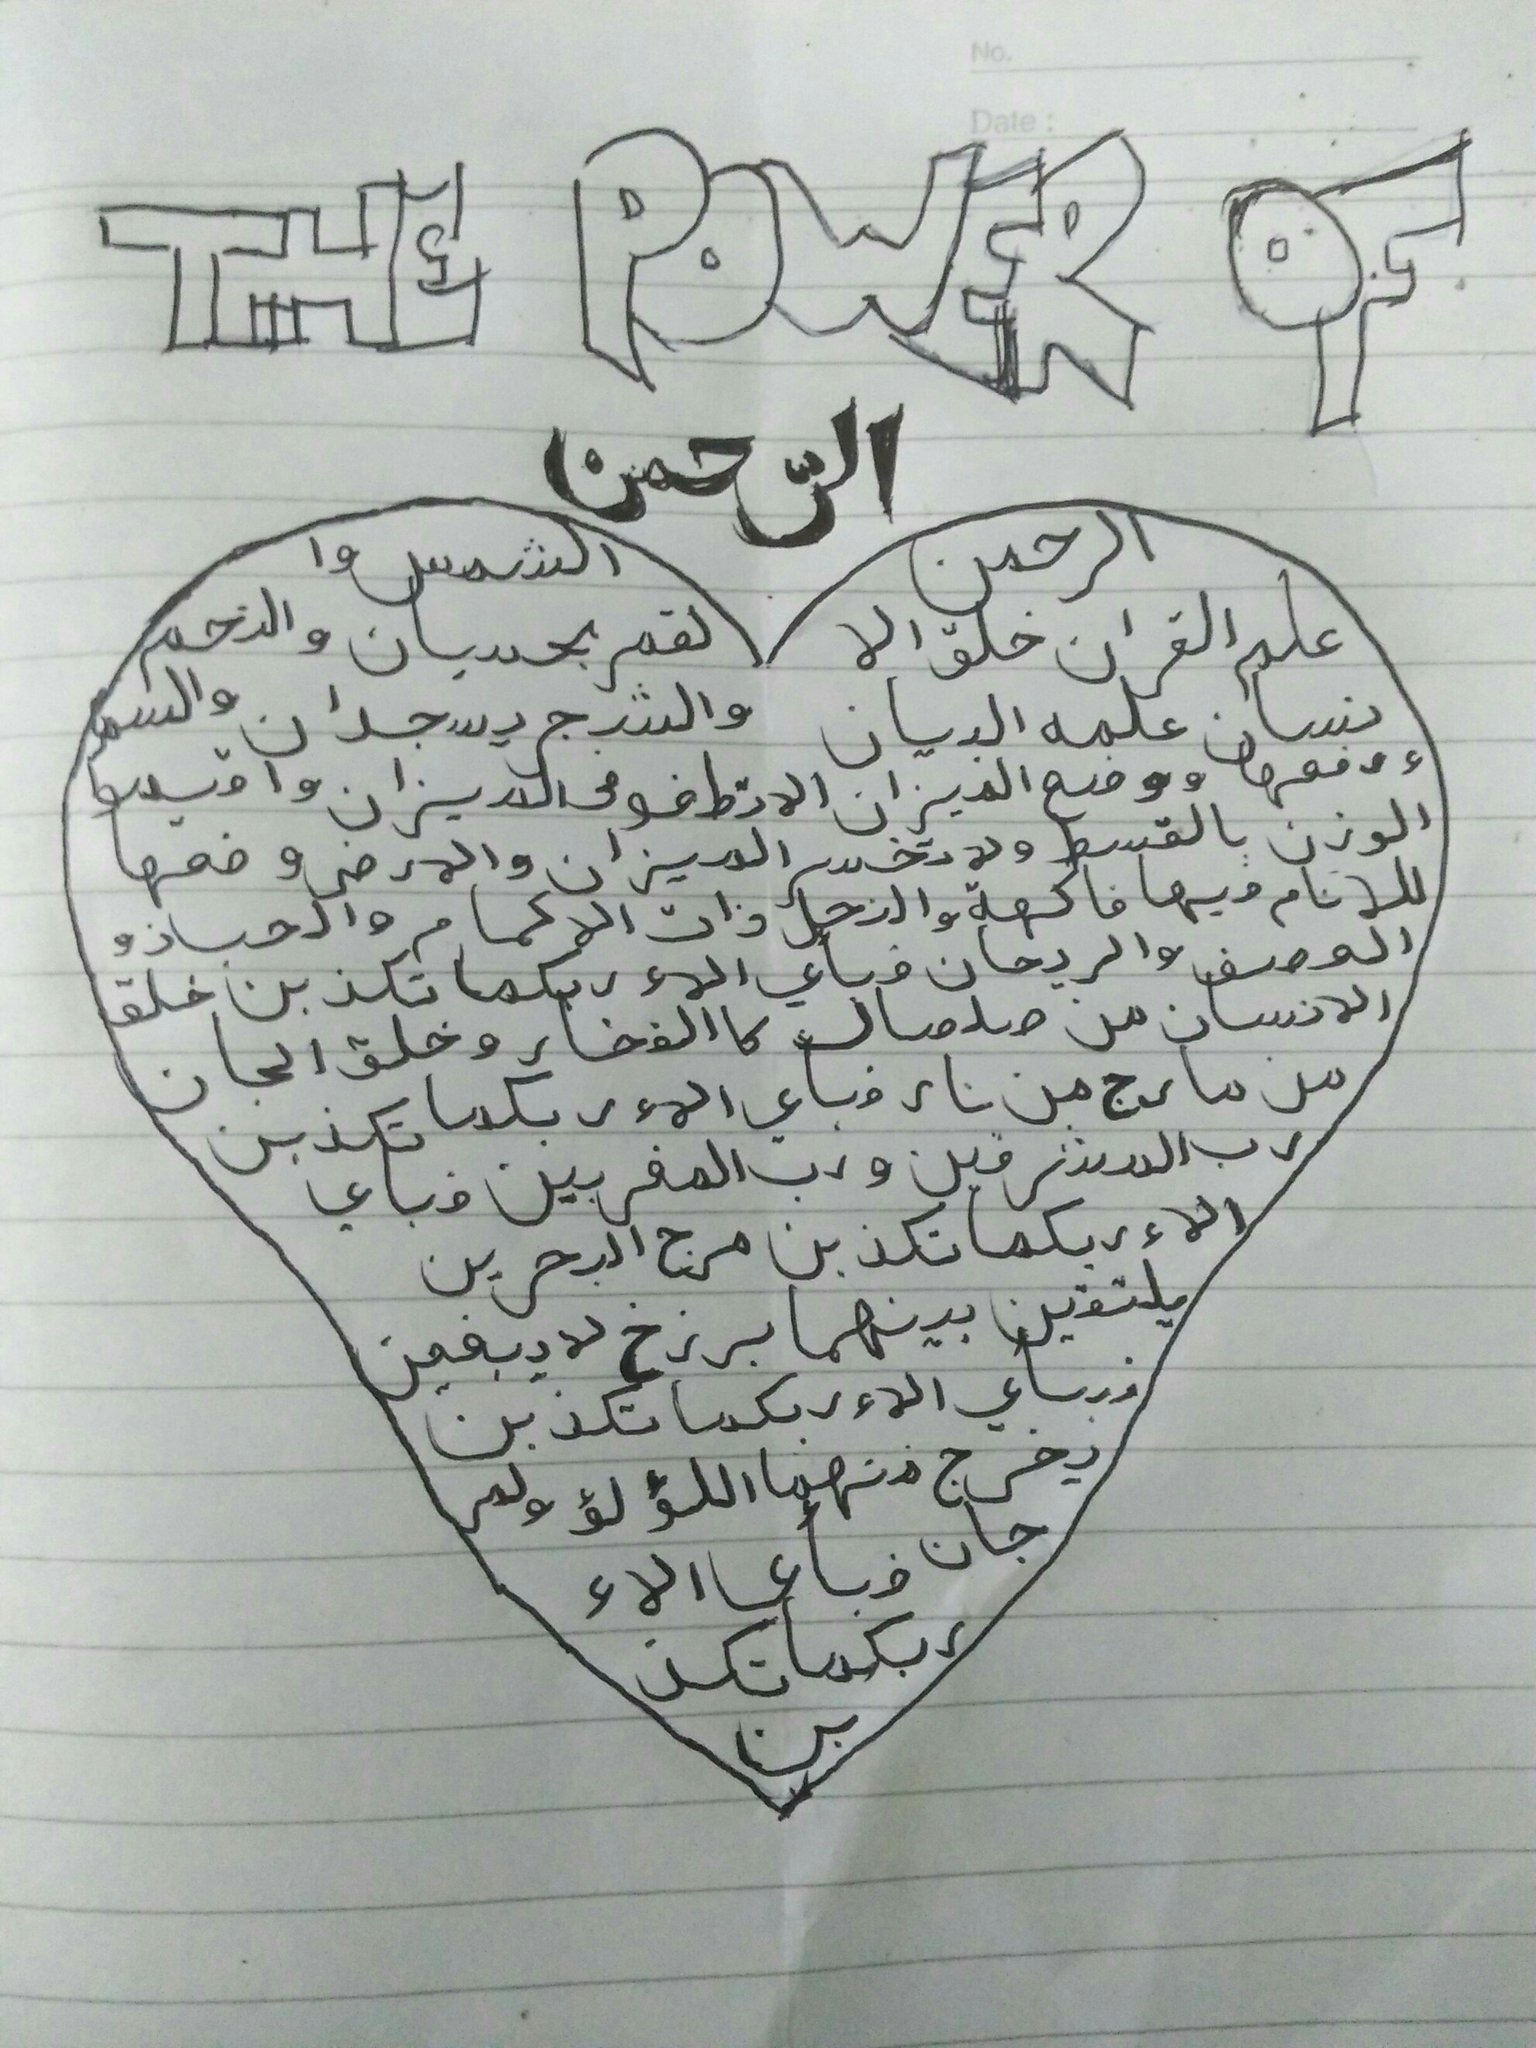 No.
Date :
THE POWER OF
الرّحمن
الرحمن
علم القران خلق الا
نسان علمه البيان
الشمس وا
لقمر بحسبان والنجم
والشجر يسجدان والسم
ء رفعها ووضع الميزان الا تطغو فى الميزان وا قيمو
الوزن بالقسط ولا تخسر الميزان والارض وضعها
للانام فيها فاكهة والنخل ذات الاكمام والحب ذو
العصف والريحان فبأي الاء ربكما تكذبن خلق
الانسان من صلصال كا الفخار وخلق الجان
من مارج من نار فبأي الاء ربكما تكذبن
رب المشرقين ورب المغربين فبأي
الاء ربكما تكذبن مرج البحرين
يلتقين بينهما برزخ لا يبغين
فبأي الاء ربكما تكذبن
يخرج منهما اللؤلؤ ولمر
جان فبأي الاء
ربكما تكذ
بن